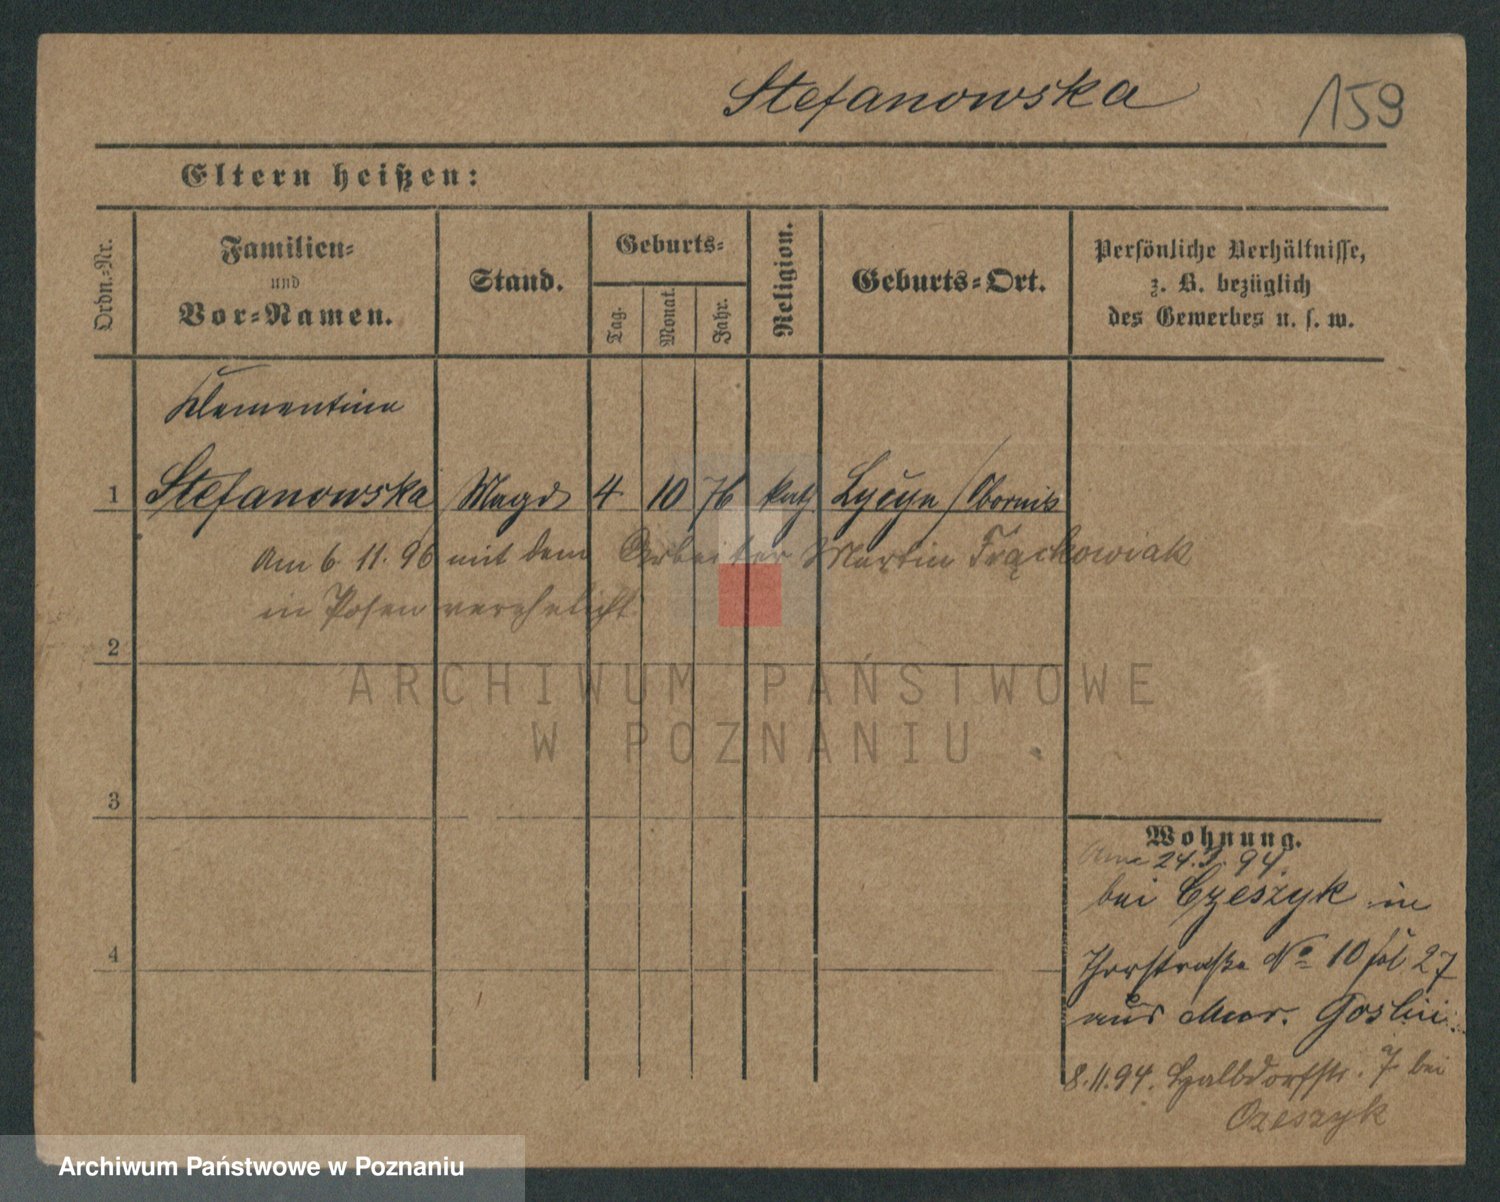 Stefanowska
159
Eltern heißen:
Ordn.-Nr.
Familien-
und
Vor-Namen.
Stand.
Geburts-
Tag.
Monat.
Jahr.
Religion.
Geburts-Ort.
Persönliche Verhältnisse,
z. B. bezüglich
des Gewerbes u. s. w.
Klementine
1 Stefanowska Magd 4 10 76 kath Obornik
Am 6. 11. 96 mit dem Arbeiter Martin Frąckowiak
in Posen verehelicht
2
3
4
ARCHIWUM PAŃSTWOWE
W POZNANIU
Wohnung.
24. 94
bei Czeszyk in
Thorstraße No 10 27
aus Mur. Goslin
8.11.94. Halbdorfstr. 7 bei
Czeszyk
Archiwum Państwowe w Poznaniu